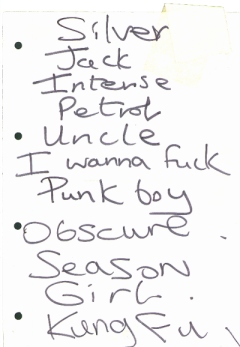 • Silver
Jack
Intense
Petrol
• Uncle
I wanna fuck
Punk boy
• Obscure.
Season
Girl.
• Kung Fu